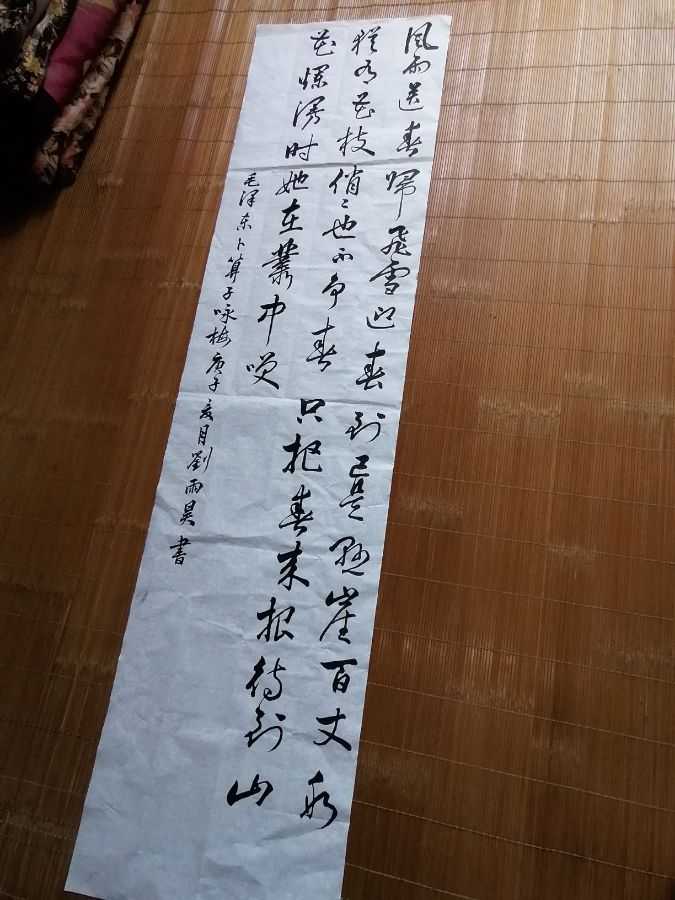 風雨送春歸飛雪迎春到已是懸崖百丈冰
猶有花枝俏〻也不争春只把春来报待到山
花爛漫时她在叢中笑
毛泽东卜算子咏梅庚子亥月劉雨昊書